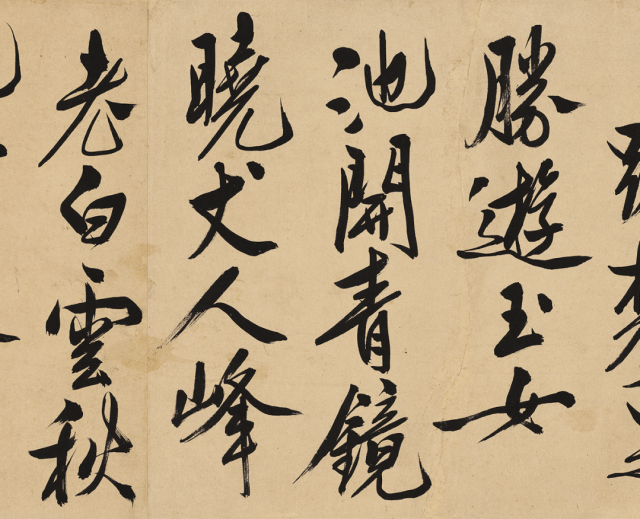 勝遊玉女
池開青鏡
曉丈人峰
老白雲秋